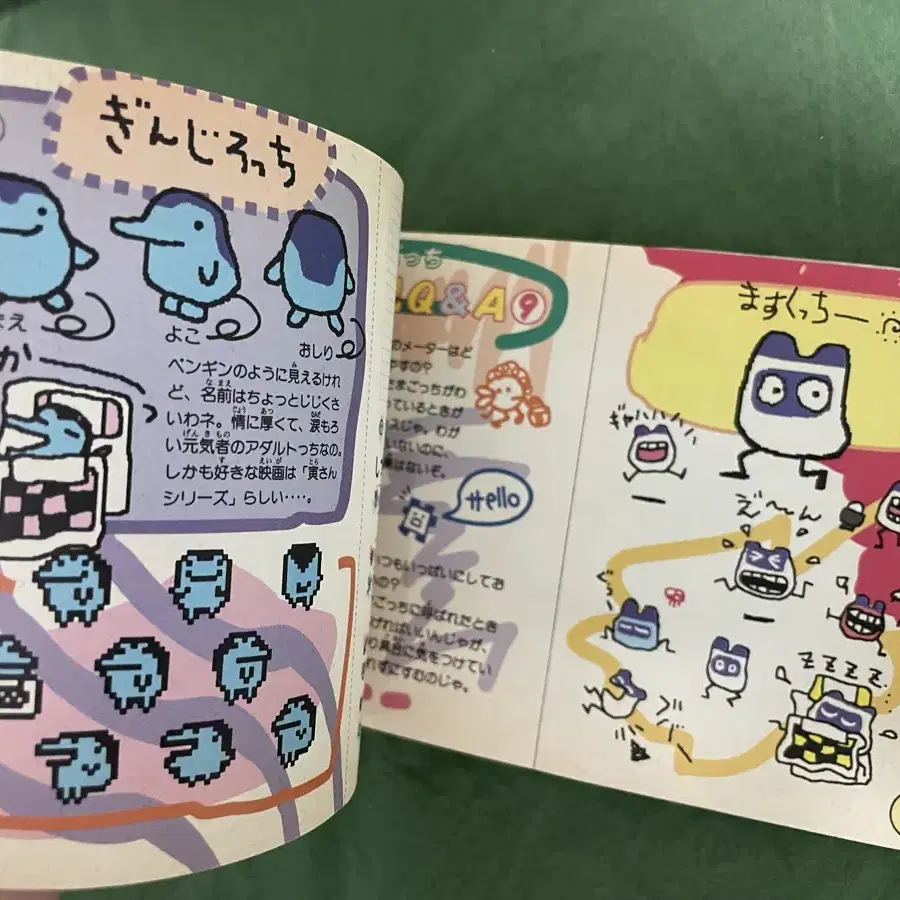 ぎんじろっち
まえ
よこ
おしり
ペンギンのように見えるけれ
ど、名前はちょっとじじくさ
いわネ。情に厚くて、涙もろ
い元気者のアダルトっちなの。
しかも好きな映画は「寅さん
シリーズ」らしい‥‥。
か
っち
Q&A⑨
のメーターはど
やすの?
たまごっちがわ
っているときが
スじゃ。わが
いないのに、
はないぞ。
Hello
いつもいっぱいにしてお
の?
ごっちに呼ばれたとき
げればいいんじゃが、
り具合に気をつけてい
れずにすむのじゃ。
ますくっちー
ギャハハハ
え〜〜ん
ZZZZ